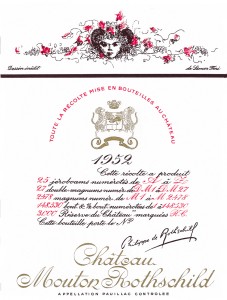 Dessin inédit de Léonor Fini
TOUTE LA RÉCOLTE MISE EN BOUTEILLES AU CHÂTEAU
1952
Cette récolte a produit
25 jéroboams numérotés de A à
27 double-magnums numér. de D M 1 à D M 27
2478 magnums numér. de M 1 à M 2478
3000 "Réserve du Château" marquées R.C.
Cette bouteille porte le Nº
Philippe de Rothschild
Château
Mouton Rothschild
APPELLATION PAUILLAC CONTRÔLÉE